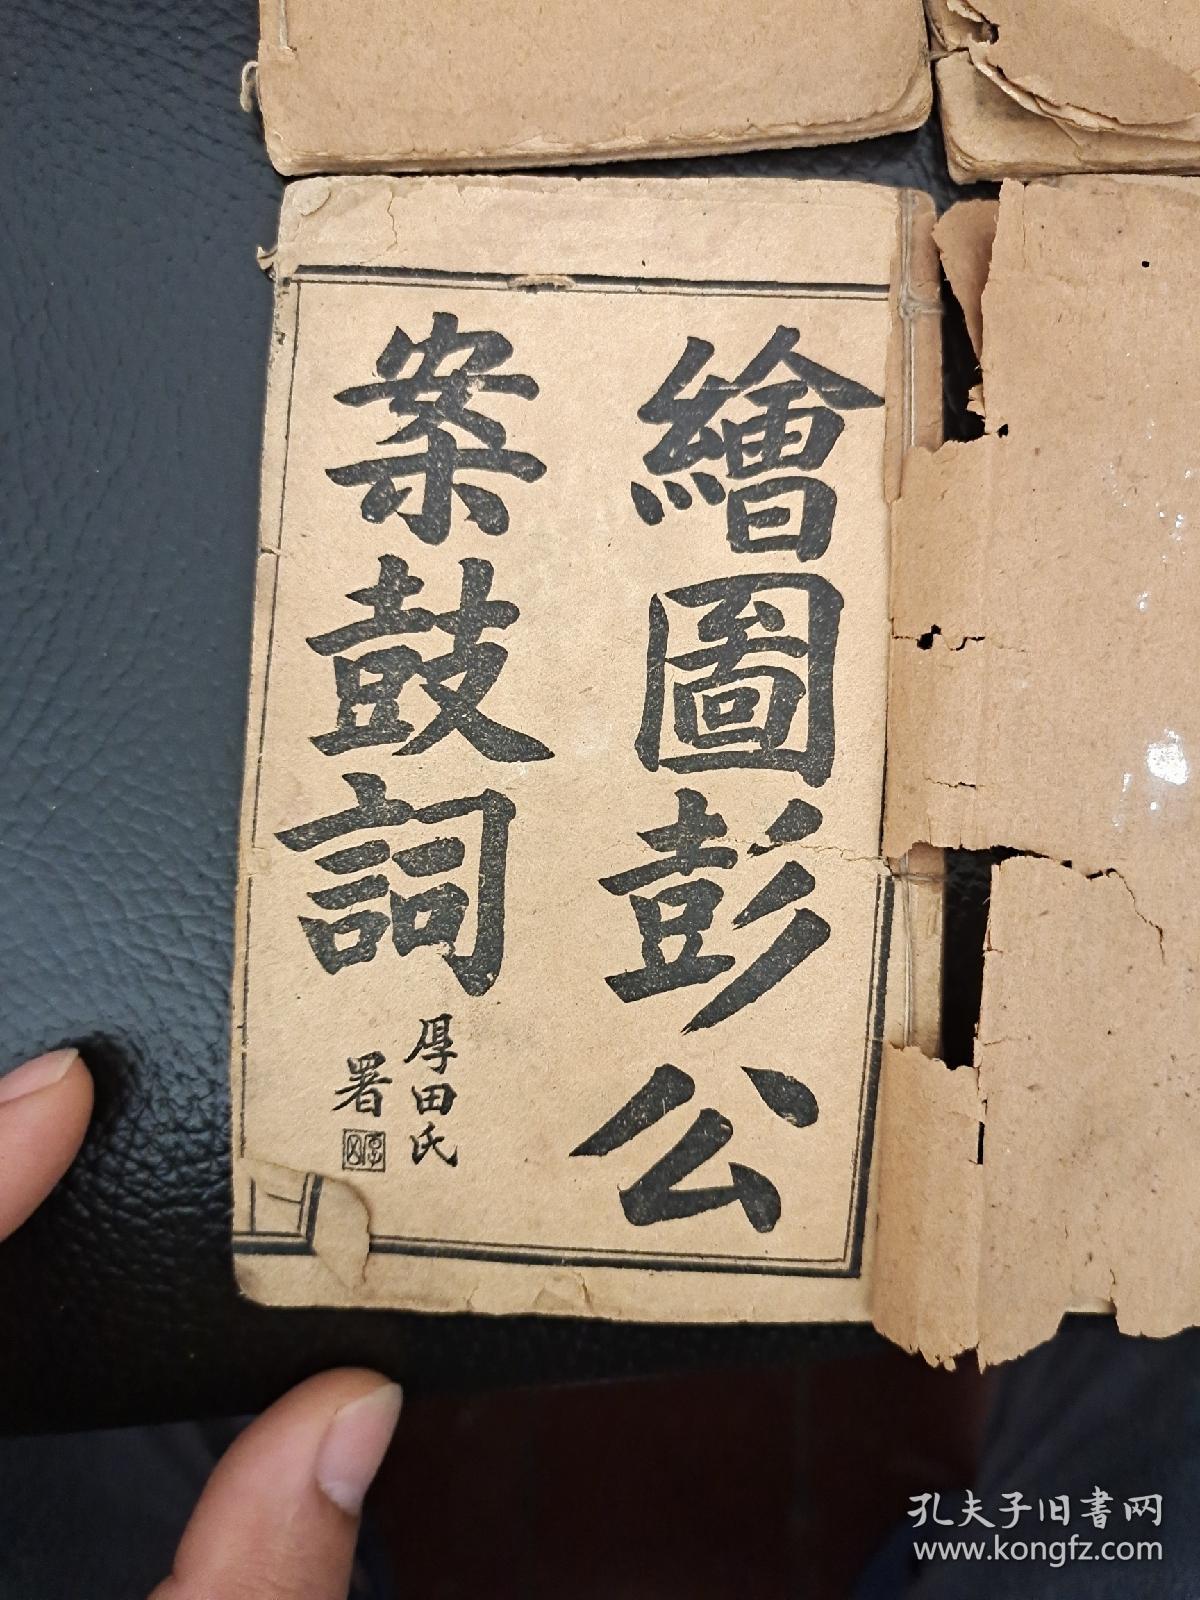 繪圖彭公
案鼓詞
厚田氏
署
孔夫子旧書网
www.kongfz.com